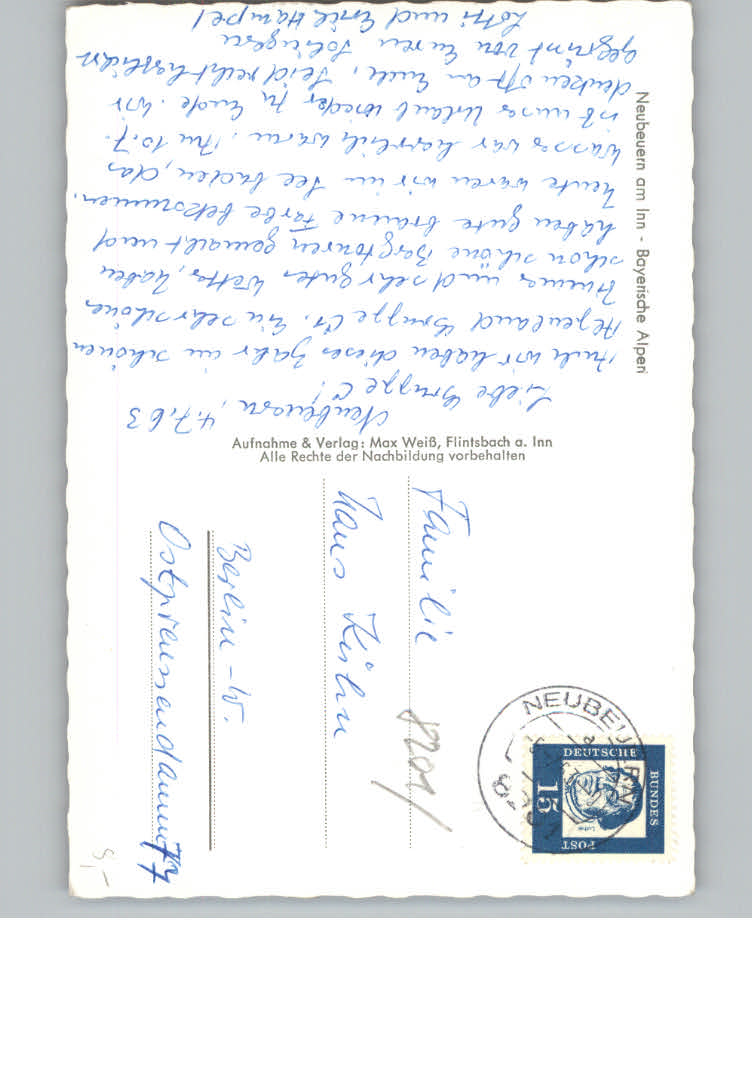 Neubeuern, 4.7.63
Liebe Gruppe C!
Auch wir haben dieses Jahr im schönen
Alpenland Gruppe C1. Ein sehr schönes
Zimmer und sehr gutes Wetter, haben
schon schöne Bergtouren gemacht und
haben gute braune Farbe bekommen.
Heute waren wir im See baden, das
Wasser war herrlich warm. Am 10.7.
ist unser Urlaub wieder zu Ende. Wir
denken oft an Euch, seid recht herzlichst
gegrüßt von Euren
Lotti und Emil Hampel
Neubeuern am Inn - Bayerische Alpen
Aufnahme & Verlag: Max Weiß, Flintsbach a. Inn
Alle Rechte der Nachbildung vorbehalten
Familie
Hans Kühn
Berlin-W.
Ostpreussendamm 77
8201/
5,-
NEUBEUERN
DEUTSCHE
BUNDES
POST
15
Luther